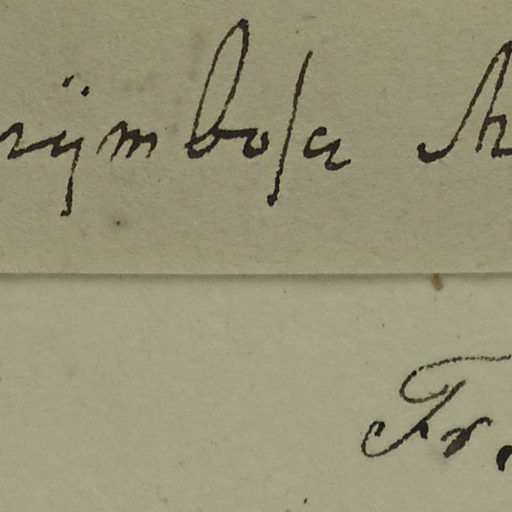 rÿmboſa
Fr.